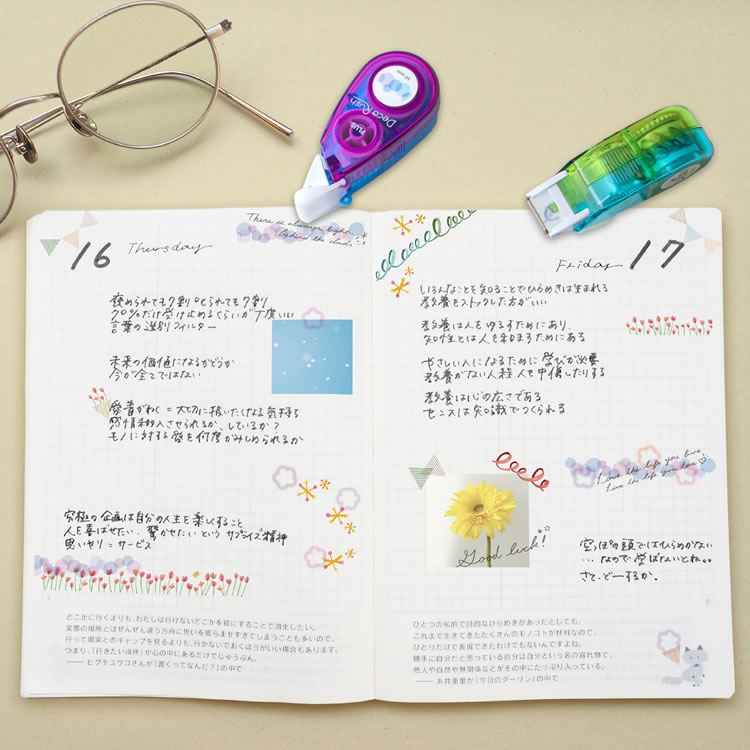 PLUS
Deco Rush
16 Thursday
There is always light
behind the clouds.
褒められても7割 叱られても7割
70%だけ受け止めるくらいが丁度いい
言葉の選別フィルター
未来の価値になるかどうか
今が全てではない
愛着がわく=大切に扱いたくなる気持ち
感情移入させられるか、しているか?
モノに対する愛を何度かみしめられるか
究極の企画は自分の人生を楽しむこと
人を喜ばせたい、驚かせたいという サプライズ精神
思いやり=サービス
どこかに行くよりも、わたしは行けないどこかを絵にすることで消化したい。
実際の場所とはぜんぜん違う方向に思いを膨らませすぎてしまうことも多いので、
行って現実とのギャップを見るよりも、行かないでおくほうがいい場合もあります。
つまり、「行きたい場所」が心の中にあるだけでじゅうぶん。
―― ヒグチユウコさんが『書くってなんだ?』の中で
Friday 17
いろんなことを知ることでひらめきは生まれる
教養をストックした方がいい
教養は人をゆるすためにあり、
知性とは人を和ますためにある
やさしい人になるために学びが必要
教養がない人程、人を中傷したりする
教養は心の広さである
センスは知識でつくられる
Love the life you live.
Live the life you love.
Good luck!
空っぽの頭ではひらめかない
…なので学ばないとね。。
さて、どーするか。
ひとつの私的で詩的なひらめきがあったとしても、
これまで生きてきたたくさんのモノゴトが材料なので、
ひとりだけで表現できたわけでもないんですよね。
勝手に自分だと思っている自分は自分という名の容れ物で、
他人や自然や無関係などがその中にたっぷり入っている。
―― 糸井重里が『今日のダーリン』の中で